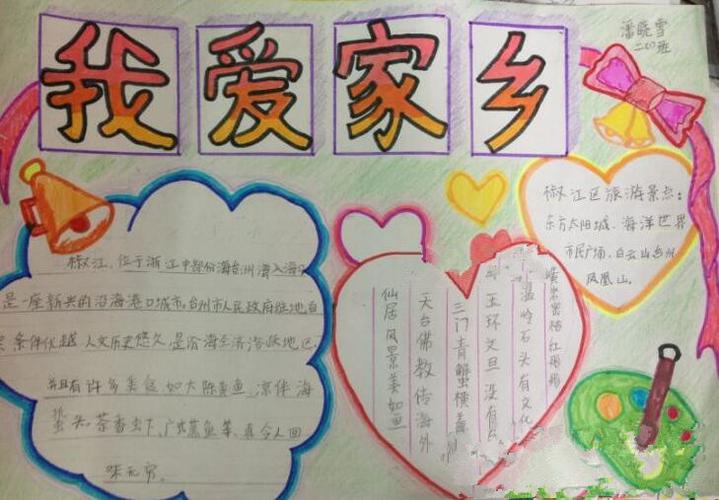 我爱家乡
潘晓雪
二(1)班
椒江，位于浙江中部份海台州湾入海口
是一座新兴的沿海港口城市，台州市人民政府驻地，自
条件优越，人文历史悠久，是沿海经济活跃地区。
并且有许多美食，如大陈黄鱼，凉伴海
蜇头，茶香虾，广式蒸鱼等，真令人回
味无穷。
椒江区旅游景点：
东方太阳城、海洋世界
市民广场、白云山台州
凤凰山。
黄岩蜜桔红彤彤
温岭石头有文化
玉环文旦没有
三门青蟹横着
天台佛教传海外
仙居风景美如画